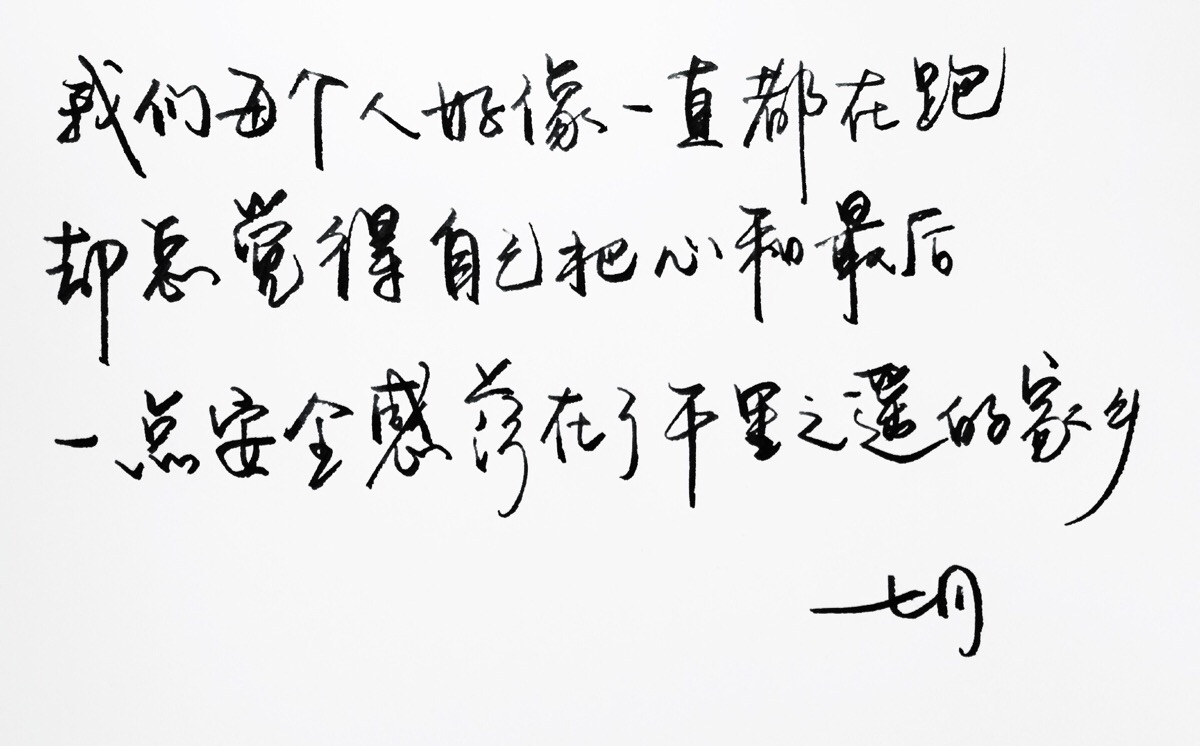 我们每个人好像一直都在跑
却总觉得自己把心和最后
一点安全感落在了千里之遥的家乡
七月